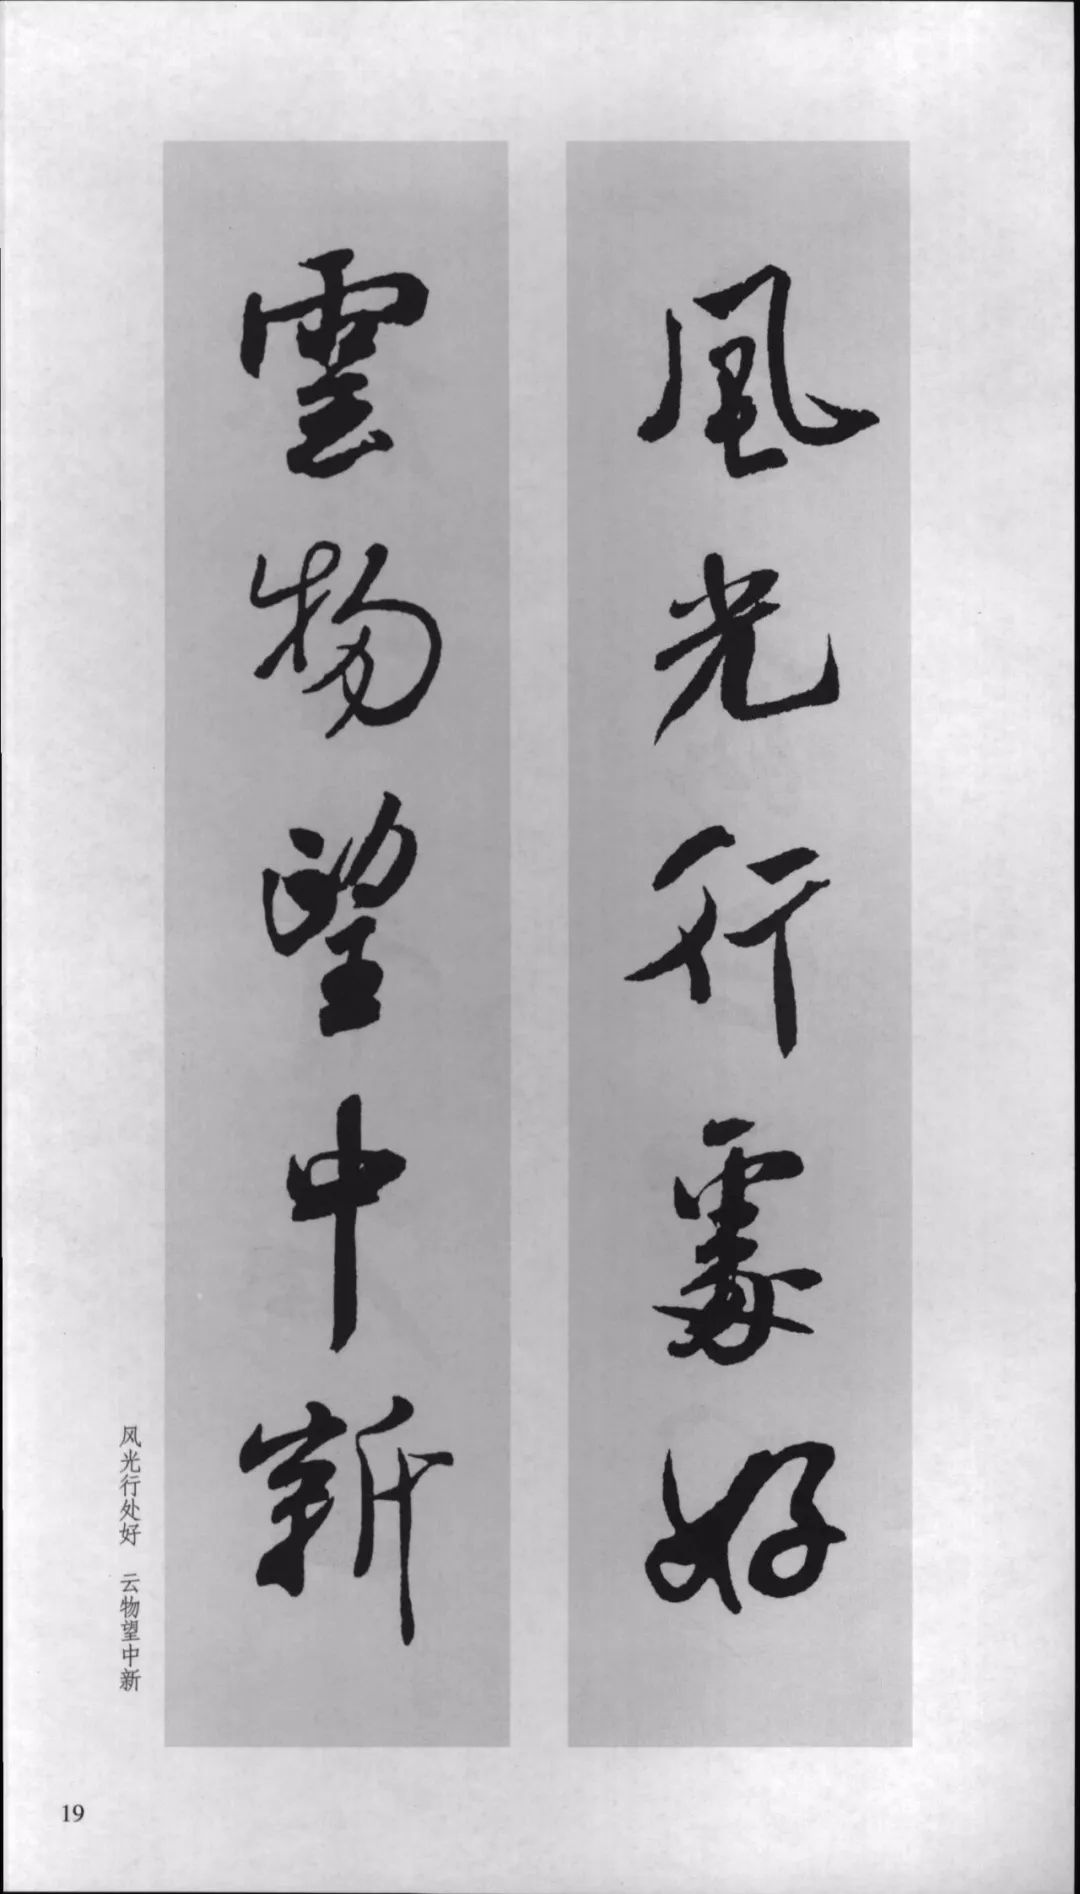 風光行處好
雲物望中新
风光行处好 云物望中新
19